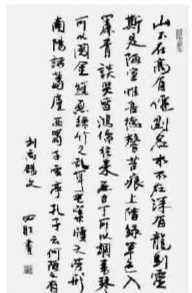 山不在高有僊則名水不在深有龍則靈
斯是陋室惟吾德馨苔痕上階綠草色入
簾青談笑有鴻儒往來無白丁可以調素琴
可以閱金經無絲竹之乱耳無案牘之勞形
南陽諸葛廬西蜀子雲亭孔子云何陋有
刘禹錫文